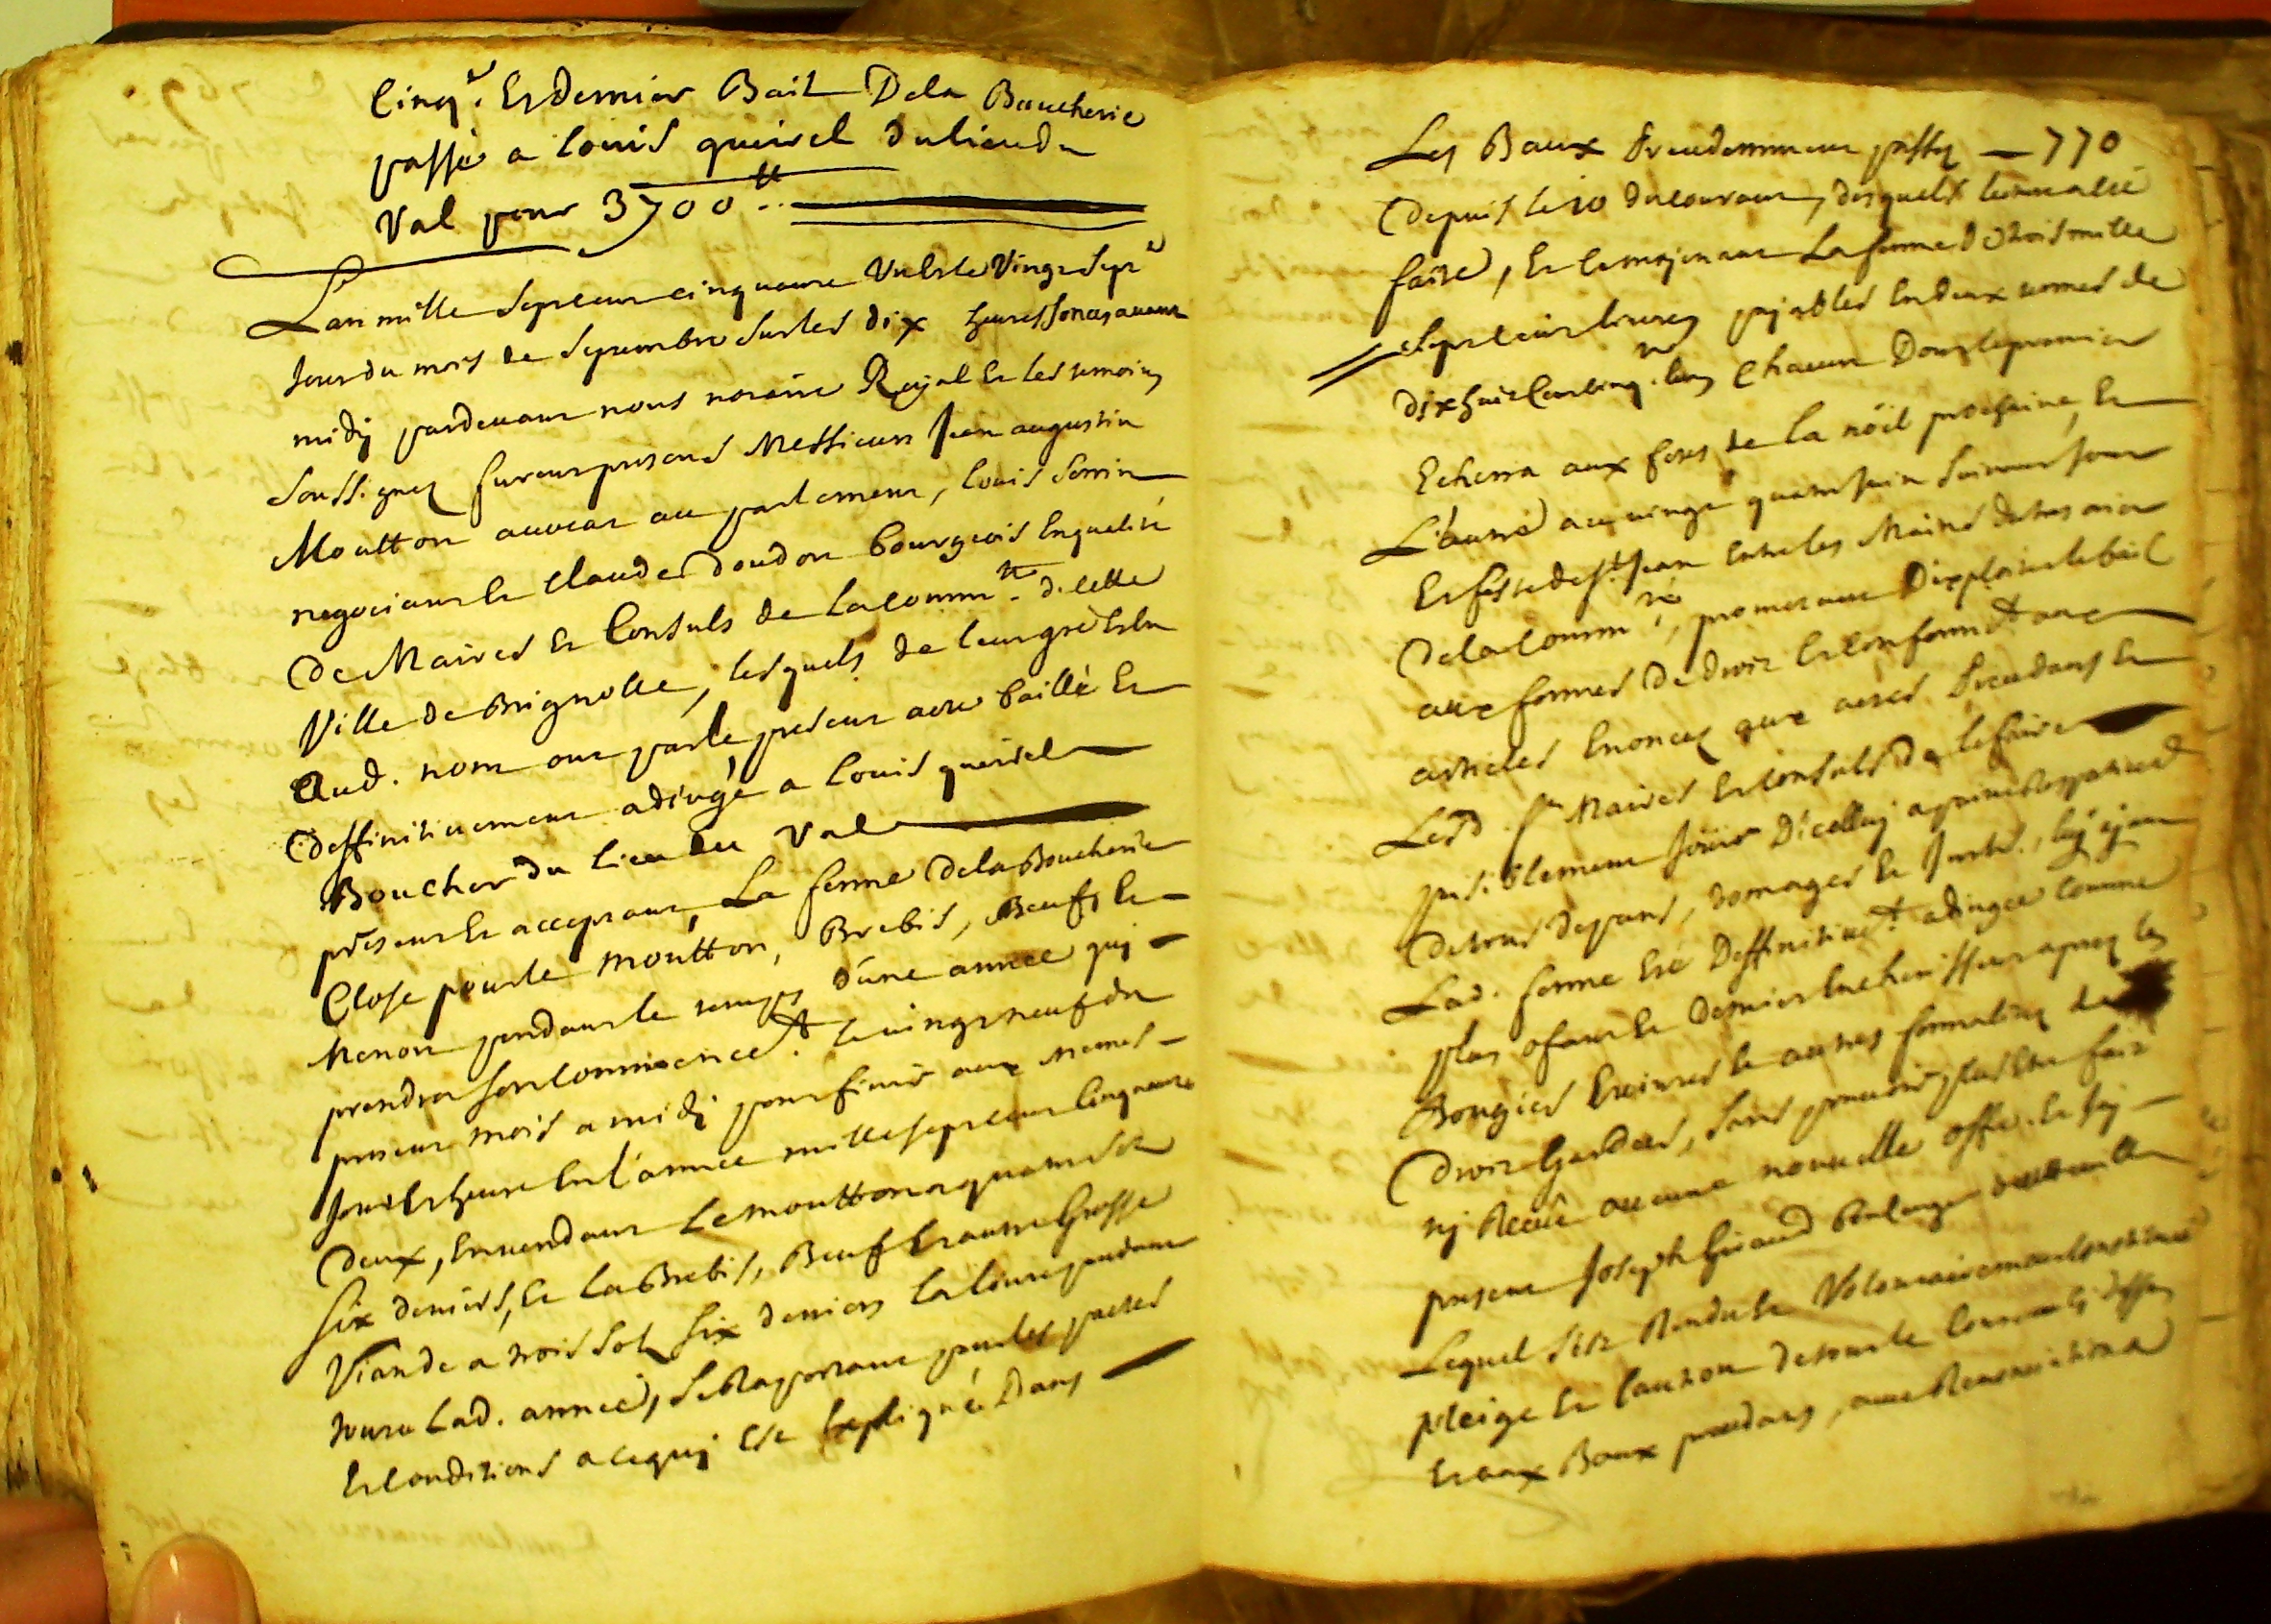 Cinq.e Et dernier Bail Dela Boucherie
passé a Louis queirel du lieu du
Val pour 3700 ll..
Lan mille Sept cent cinquante Un Et le Vingt Sept.e
Jour du mois de Septembre Sur les dix heures Sonées avant
midy pardevant nous notaire Royal Et les temoins
Soussignez furent presents Messieurs Jean augustin
Moutton avocat au parlement, Louis
negociant Et Claude doudon bourgeois En qualité
De Maires Et Consuls de La comm.té de cette
Ville de Brignolle, lesquels de leur gré Et En
Aud. nom ont par le present acte baillé Et
deffinitivement adiugé a Louis queirel
Boucher du lieu du Val
present Et acceptant, La ferme Dela Boucherie
Close pour le moutton, Brebis, Beuf, Et
Menon pendant le temps d'une année quj
prendra son commencem.t le vingt neuf du
present mois a midj pour finir aux memes
Jour Et heure En l'année mille sept cent cinquante
deux, En vendant Le moutton a quatre Sol
Six deniers, Et La Brebis, Beuf Et autre Grosse
Viande a trois Sols Six deniers La Livre pendant
toute Lad. année, Se Raportant pour les pactes
Et conditions a ce quj Est Expliqué Dans
Les Baux precedemment passez — 770
Depuis le 10 du courant, desquels lecture a Eté
faite, Et Ce moyenant La somme de trois mille
Sept cent livres payables En deux termes de
dix huit Cent cinq.te livres Chacun Dont le premier
Echerra aux fetes de la nöel prochaine, Et
L'autre au vingt quatre Juin Suivant Jour
Et feste de S.t Jean Entre les Mains du tresorier
De la comm.té, promettant D'exploiter le bail
aux formes De droit Et conformem.t aux
articles Enoncez aux actes precedants Et
Lesd. S.rs Maires Et consuls De le faire
paisiblement Jöuir D'icelluj a peine
De tous depans, domages Et Interets., luj ayant
Lad. ferme Eté Deffinitivem.t adiugée Comme
plus ofrant Et Dernier Encherisseur apres les
Bougies Eteintes Et autres formalitez de
Droit Gardées, Sans pouvoir plus Etre fait
nj Receüe aucune nouvelle offre. Et Icy
present Joseph Giraud Boulanger
Lequel S'est Rendu Et Volontairement constitué
pleige Et Caution De tout le Contenu cj dessus
Et aux Baux precedants, avec Renonciation a